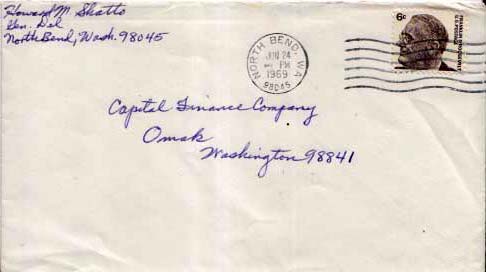 Howard M. Shatto
Gen. Del
North Bend, Wash. 98045
NORTH BEND, WA
JUN 24
PM
1969
98045
6c
FRANKLIN D. ROOSEVELT
U.S. POSTAGE
Capital Finance Company
Omak
Washington 98841